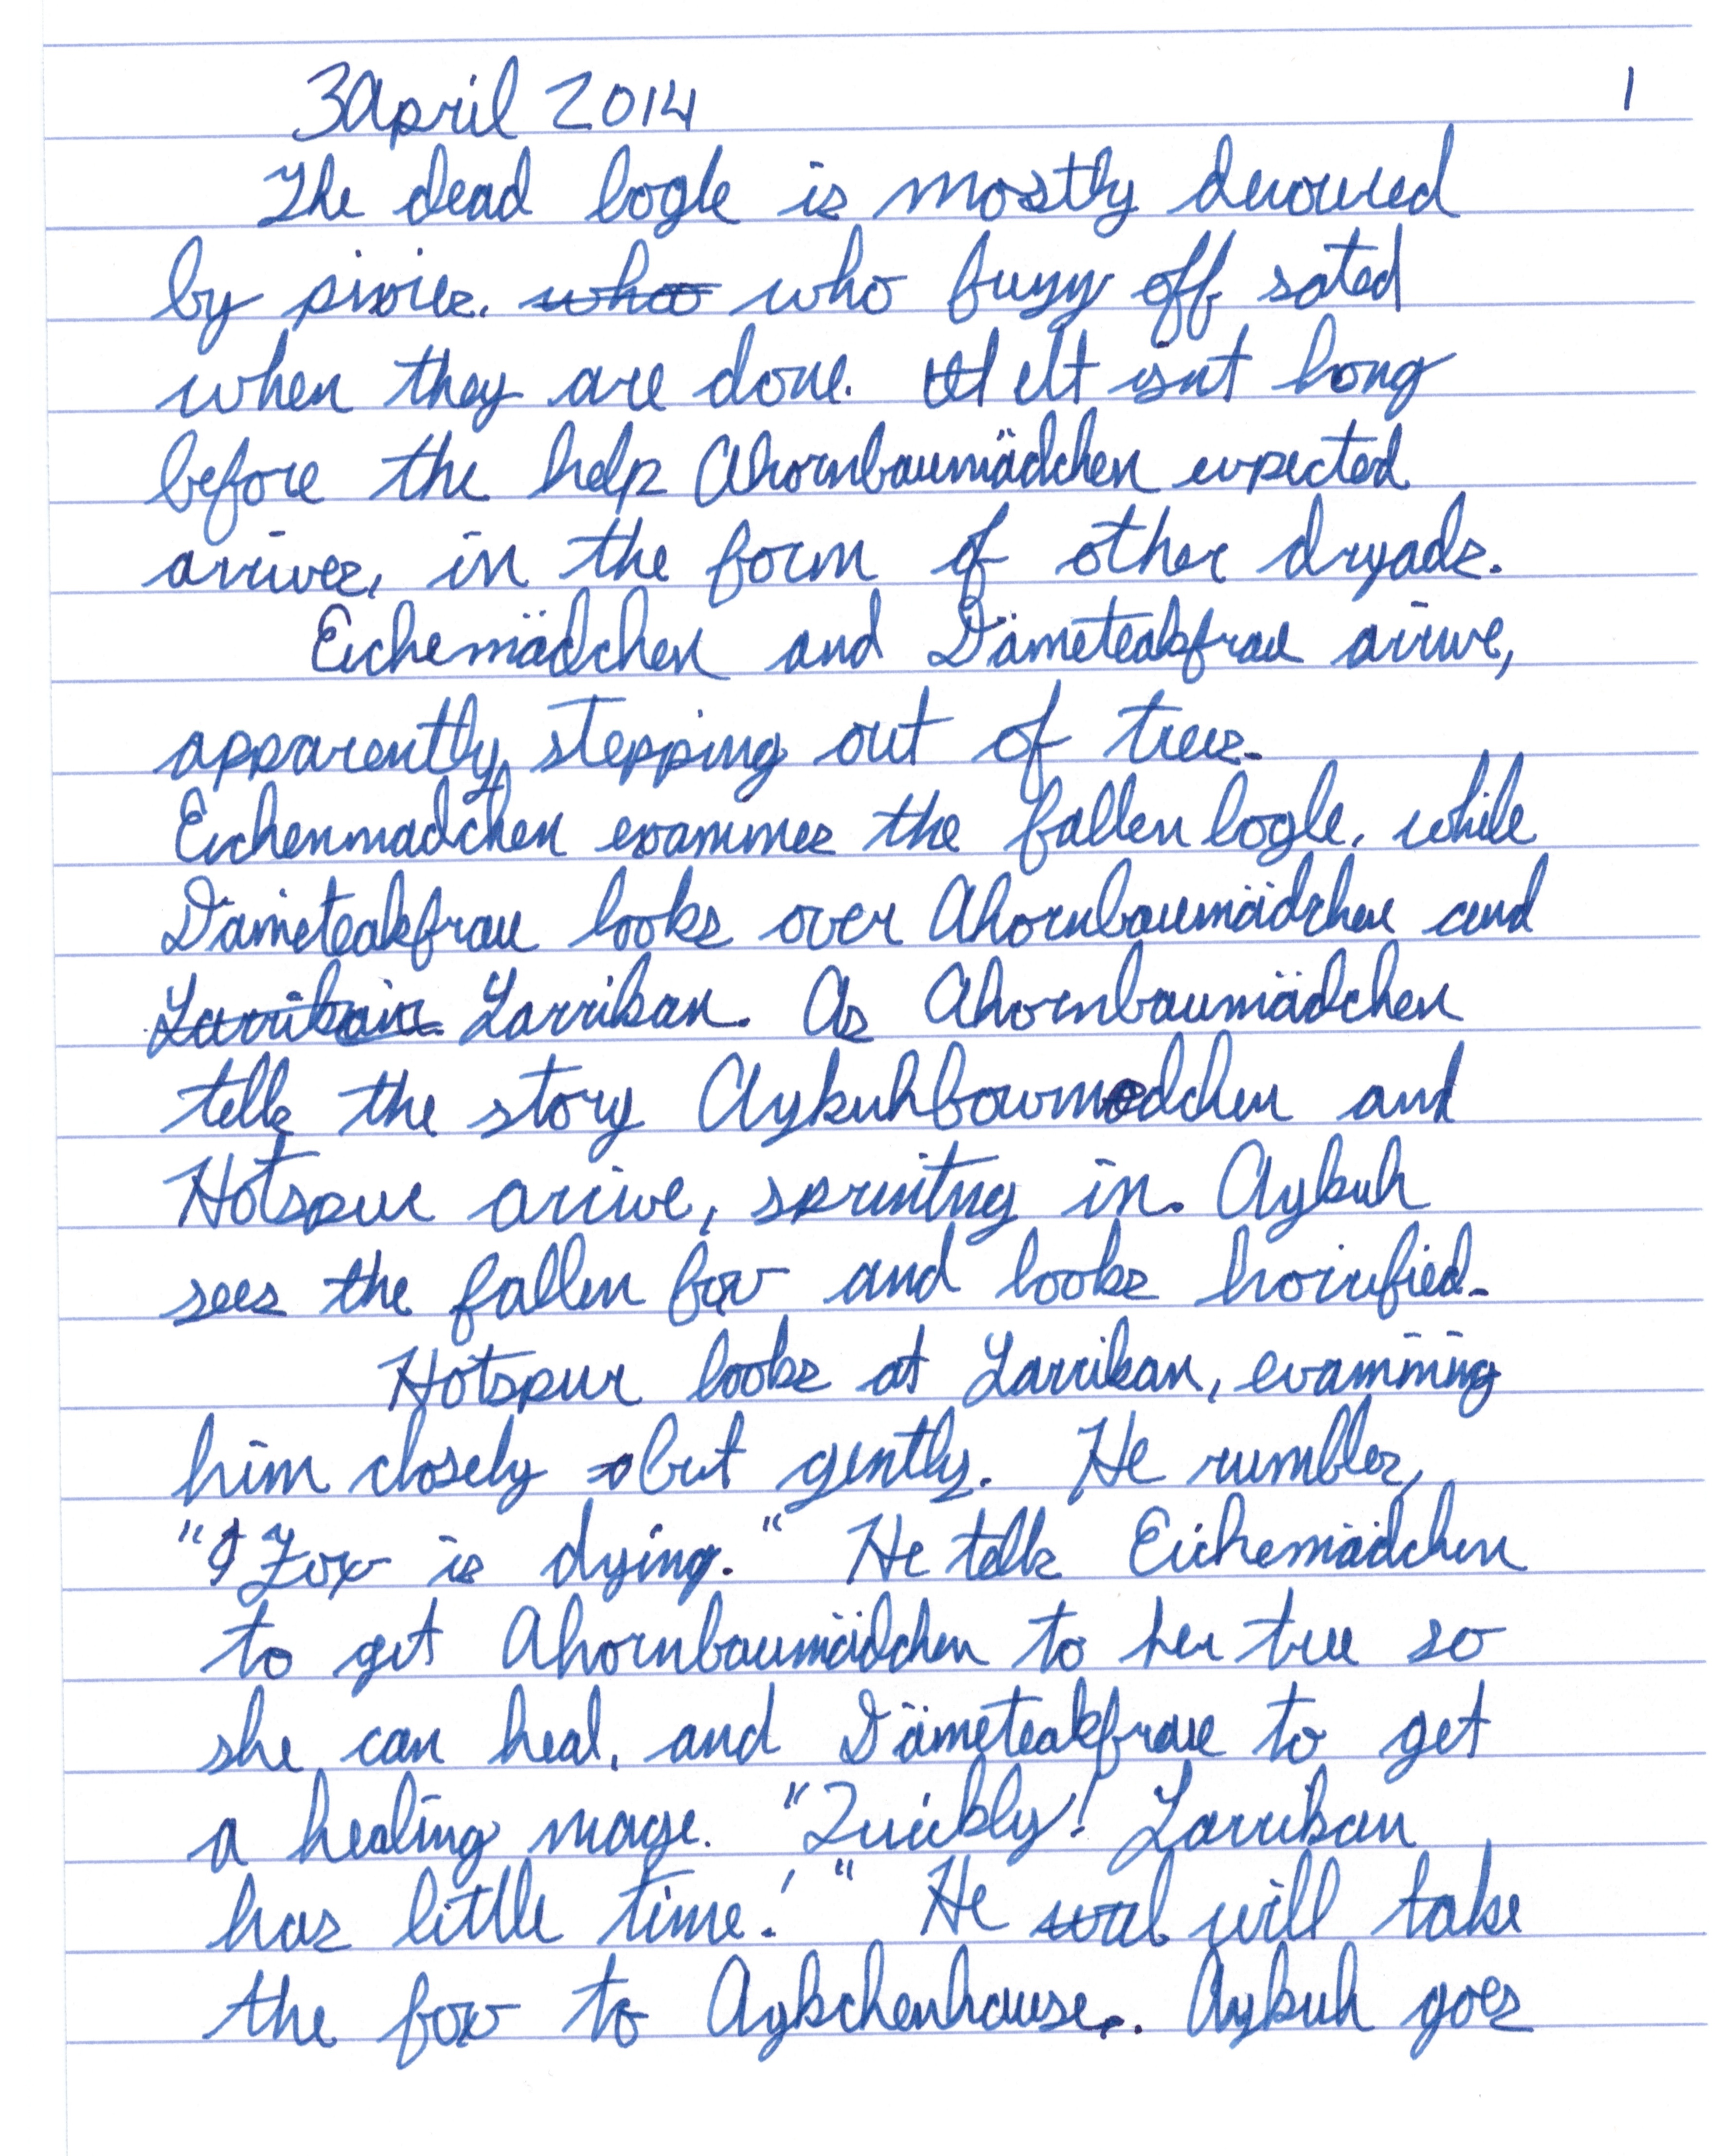 3 April 2014 1
The dead bogle is mostly devoured
by pixies, whoo who buzz off sated
when they are done. It It isn't long
before the help Ahornbaumädchen expected
arrives, in the form of other dryads.
Eichemädchen and Dämeteakfrau arrive,
apparently stepping out of trees.
Eichenmadchen examines the fallen bogle, while
Dämeteakfrau looks over Ahornbaumädchen and
Larrikain Larrikan. As Ahornbaumädchen
tells the story Aykuhbowmadchen and
Hotspur arrive, sprinting in. Aykuh
sees the fallen fox and looks horrified.
Hotspur looks at Larrikan, examining
him closely but gently. He rumbles,
"Fox is dying." He tells Eichemädchen
to get Ahornbaumädchen to her tree so
she can heal, and Dämeteakfrau to get
a healing mage. "Quickly! Larrikan
has little time!" He will take
the fox to Aykchenhause. Aykuh goes